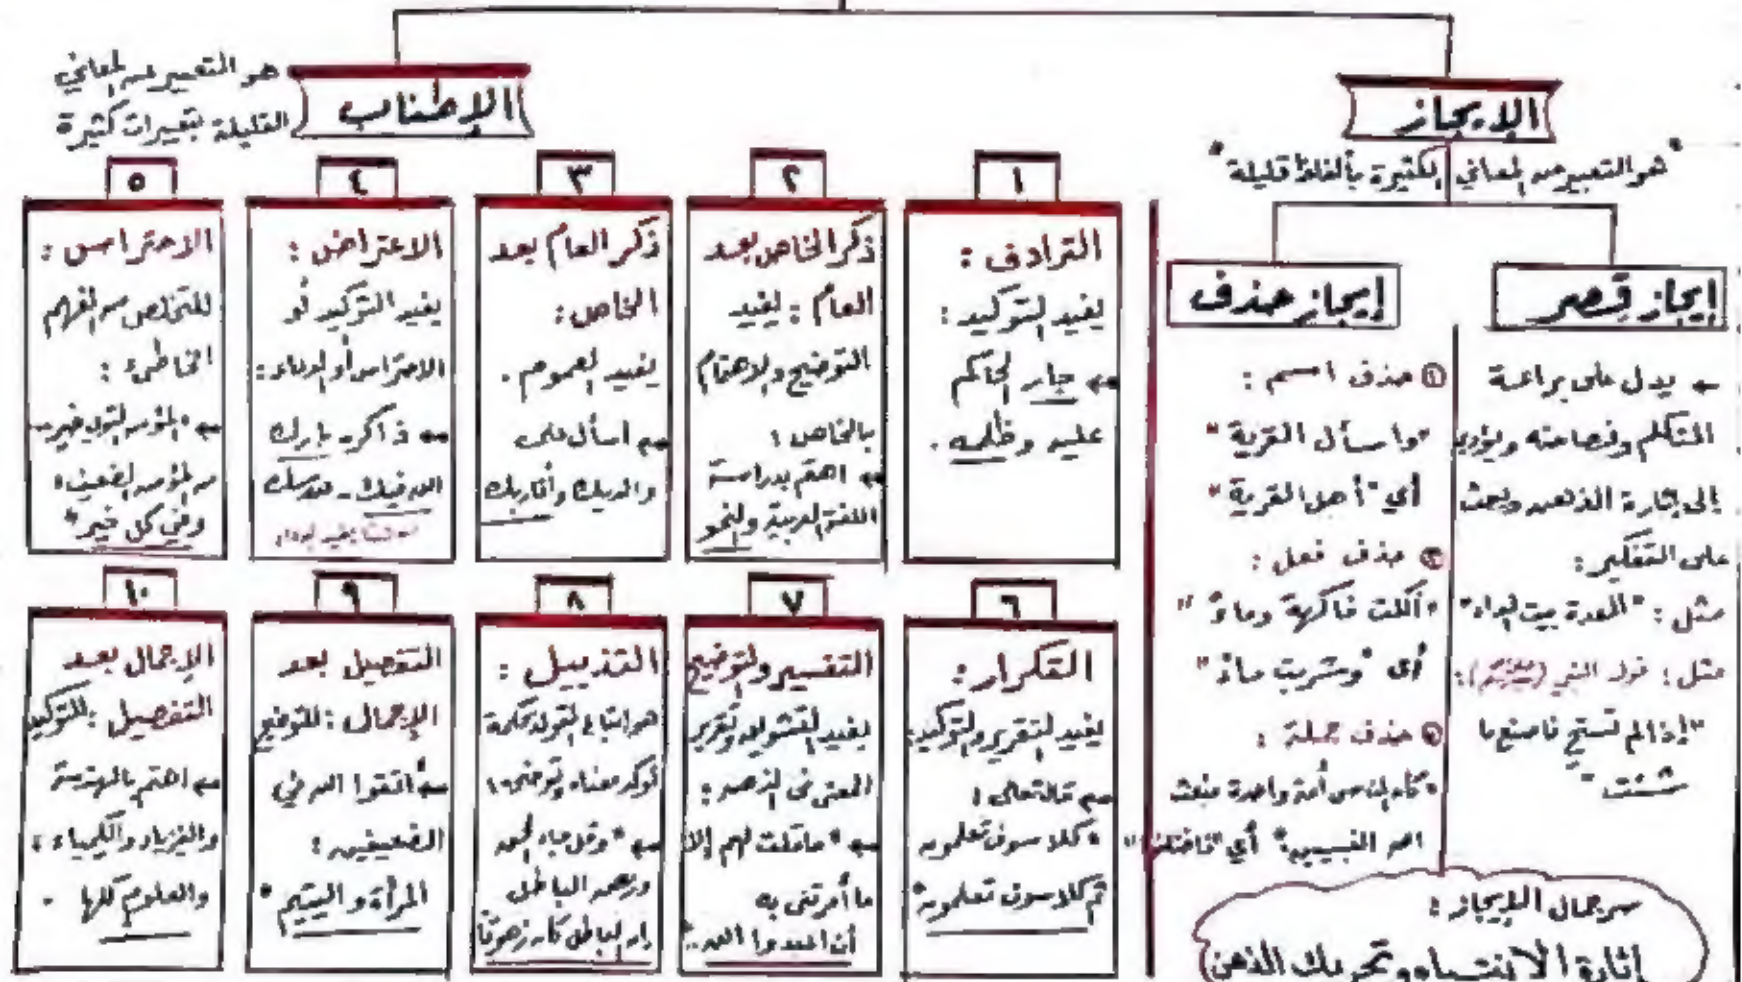 الإيجاز
"هو التعبير عن المعاني الكثيرة بألفاظ قليلة"
إيجاز قصر
← يدل على براعة
المتكلم وفصاحته ويؤدي
إلى إثارة الذهن ويحث
على التفكير:
مثل: "المعدة بيت الداء"
مثل: قول النبي (ﷺ):
"إذا لم تستح فاصنع ما
شئت"
إيجاز حذف
① حذف اسم:
"واسأل القرية"
أي "أهل القرية"
② حذف فعل:
"أكلت فاكهة وماءً"
أى "وشربت ماءً"
③ حذف جملة:
"كان الناس أمة واحدة فبعث
الله النبيين" أي "فاختلفوا"
سر جمال الإيجاز:
إثارة الانتباه وتحريك الذهن
الإطناب
هو التعبير عن المعاني
القليلة بتعبيرات كثيرة
١
الترادف:
يفيد التوكيد:
← جار الحاكم
عليه وظلمه.
٢
ذكر الخاص بعد
العام: يفيد
التوضيح والاهتمام
بالخاص:
← اهتم بدراسة
اللغة العربية والنحو
٣
ذكر العام بعد
الخاص:
يفيد العموم.
← اسأل على
والديك وأقاربك
٤
الاعتراض:
يفيد التوكيد أو
الاحتراس أو الدعاء:
← ذاكر - بارك
الله فيك - درسك
هنا يفيد الدعاء
٥
الاحتراس:
للتخلص من الفهم
الخاطئ:
← "المؤمن القوي خير
من المؤمن الضعيف
وفي كل خير"
٦
التكرار:
يفيد التقرير والتوكيد
← قال تعالى:
"كلا سوف تعلمون
ثم كلا سوف تعلمون"
٧
التفسير والتوضيح
يفيد التشويق وتقرير
المعنى فى الذهن:
← "ما قلت لهم إلا
ما أمرتنى به
أن اعبدوا الله"
٨
التذييل:
هو إتباع القول بحكمة
تؤكد معناه وتوضحه:
← "وقل جاء الحق
وزهق الباطل
إن الباطل كان زهوقا
٩
التفصيل بعد
الإجمال: للتوضيح
← اتقوا الله في
الضعيفين:
المرأة واليتيم"
١٠
الإجمال بعد
التفصيل: للتوكيد
← اهتم بالهندسة
والفيزياء والكيمياء،
والعلوم كلها.